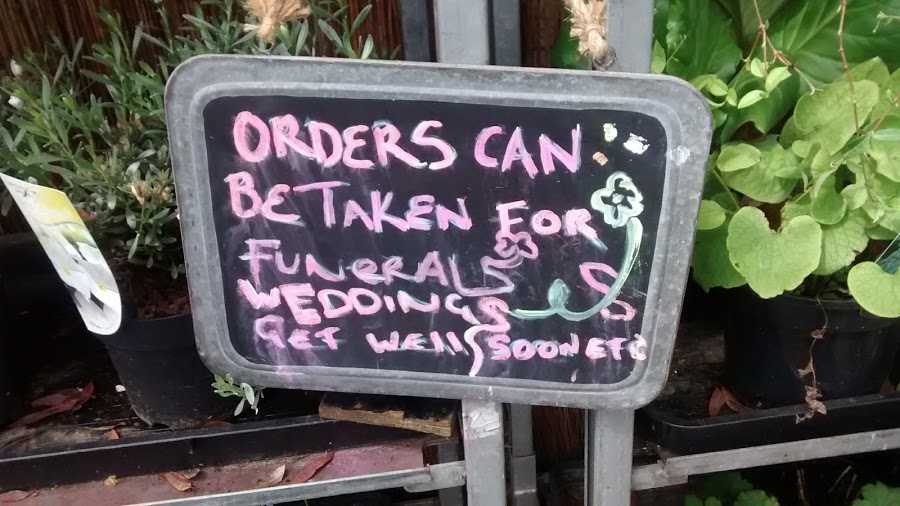 ORDERS CAN
BE TAKEN FOR
FUNERALS
WEDDINGS
GET WELL SOON ETC